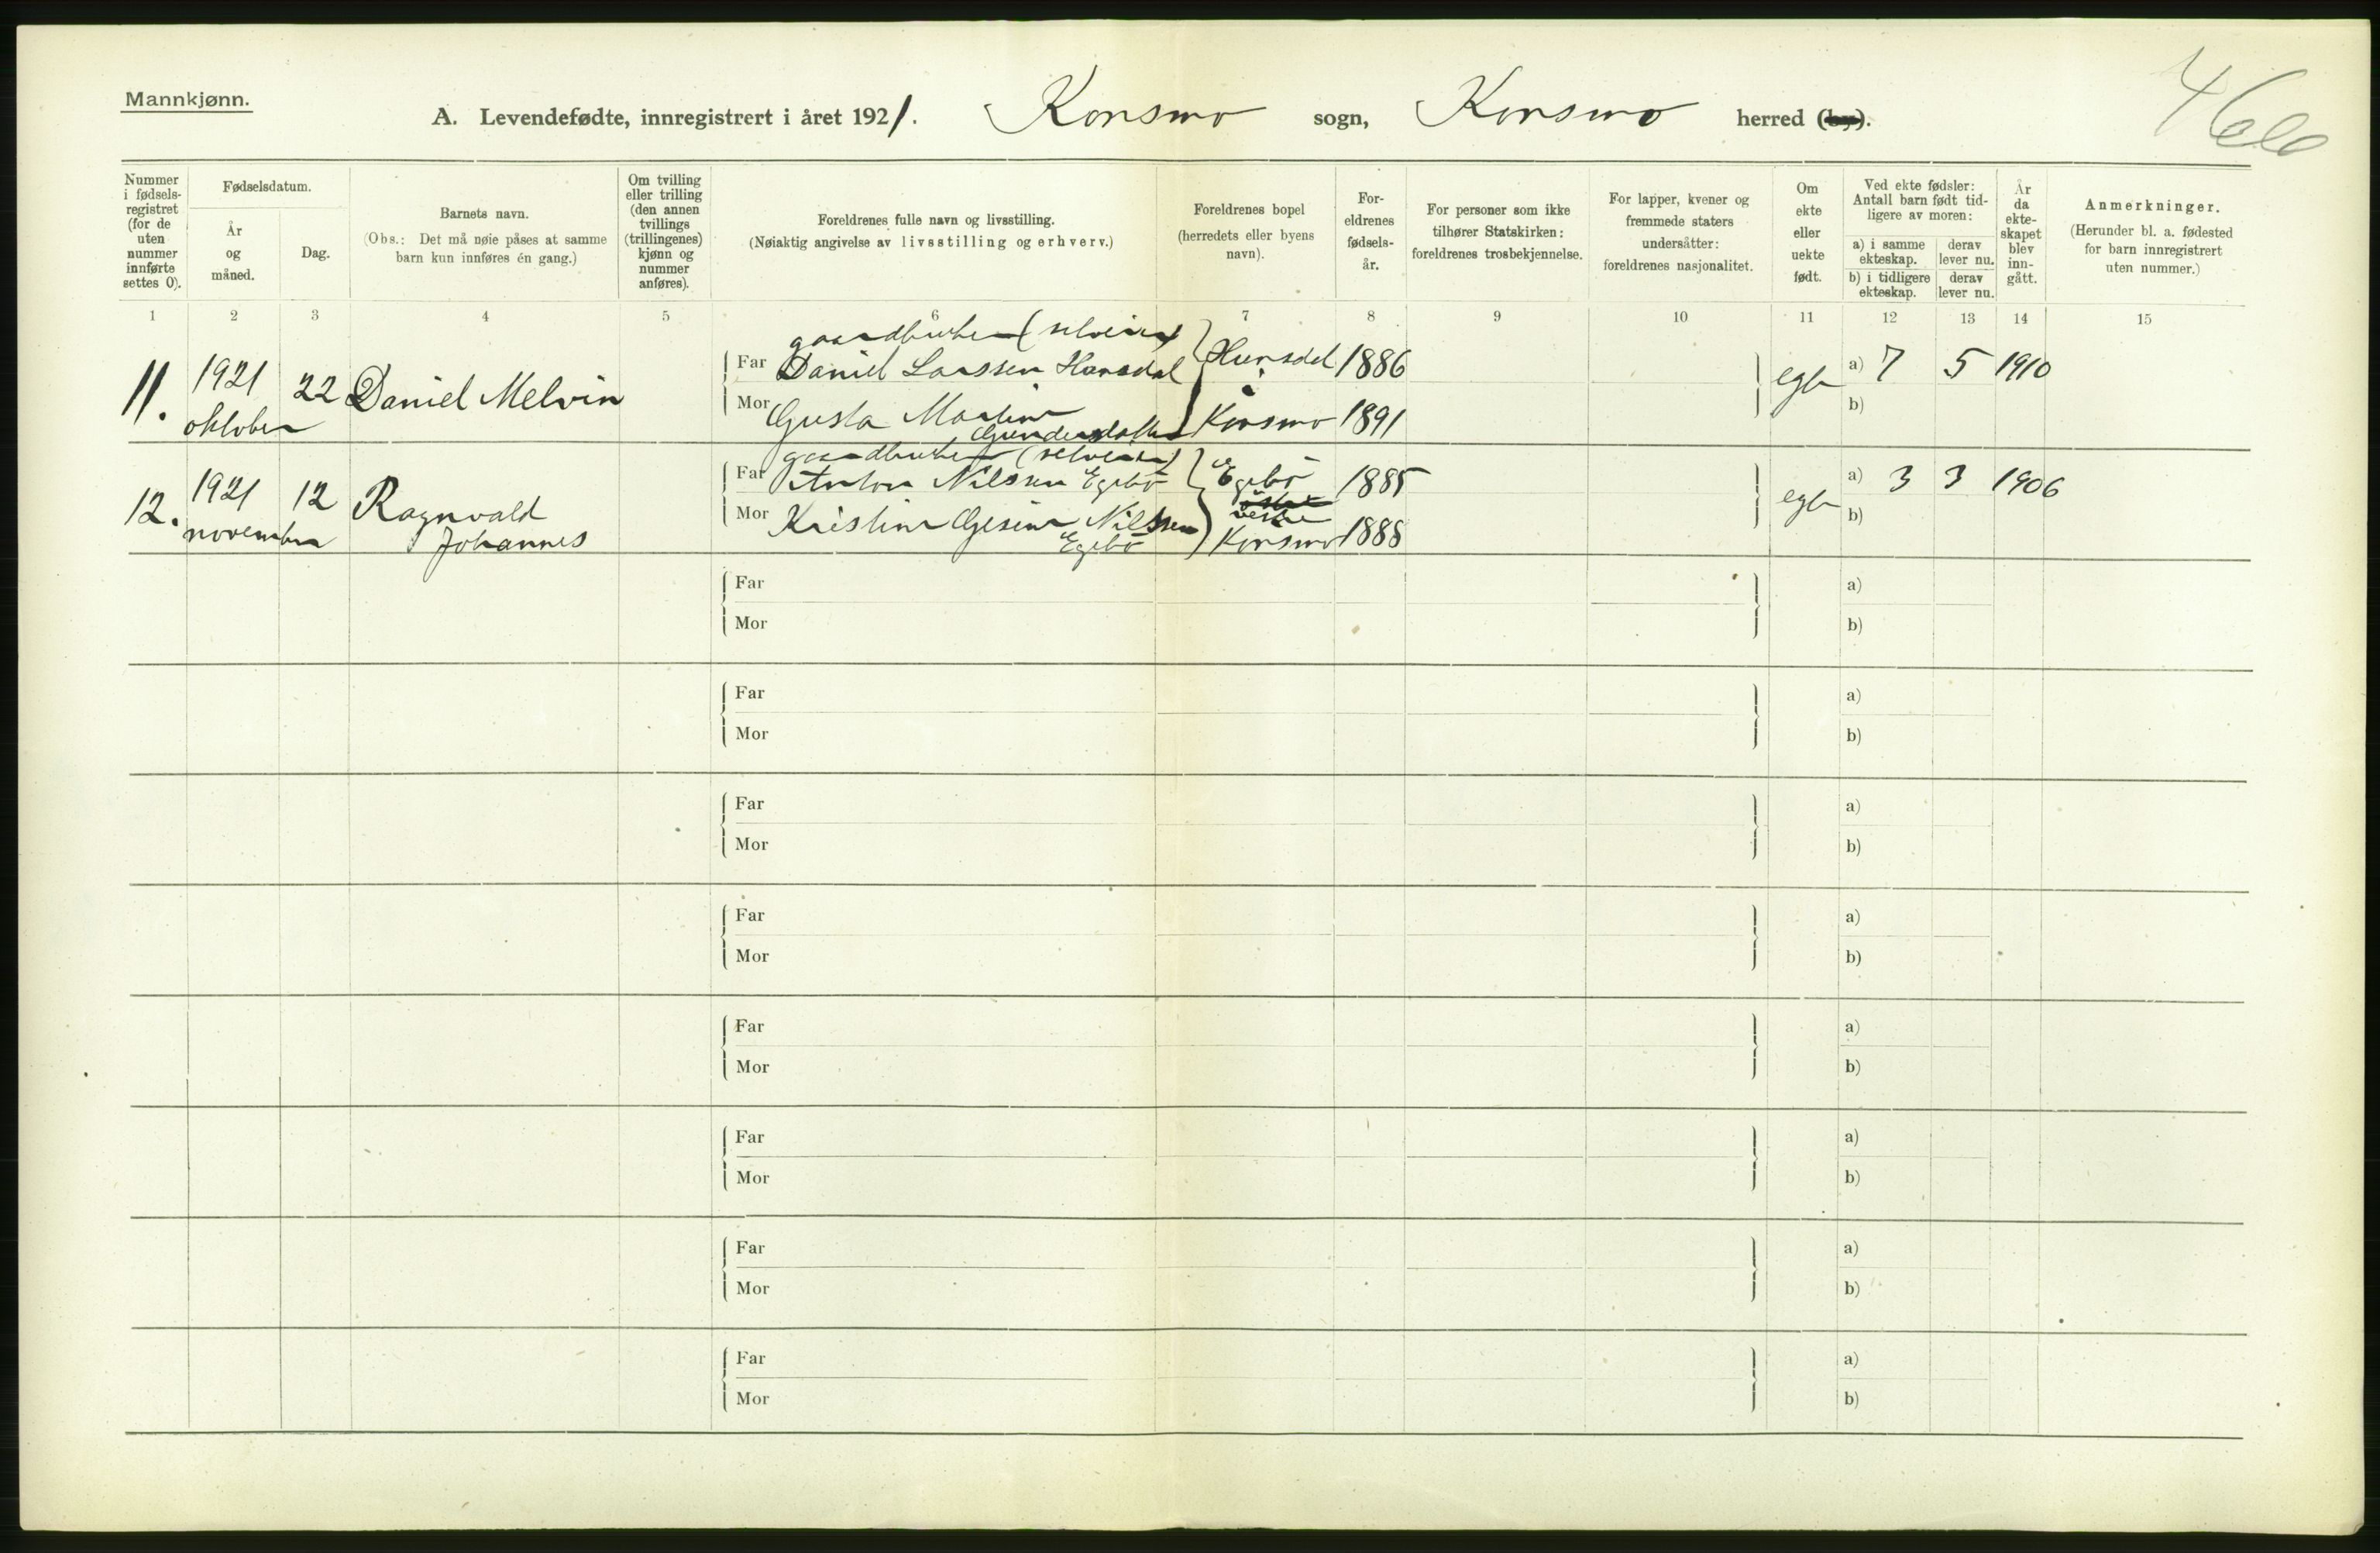 Mannkjønn.
A. Levendefødte, innregistrert i året 1921. Konsmo sogn, Konsmo herred (by).
Nummer i fødsels-registret (for de uten nummer innførte settes 0).
Fødselsdatum.
År og måned.
Dag.
Barnets navn.
(Obs.: Det må nøie påses at samme barn kun innføres én gang.)
Om tvilling eller trilling (den annen tvillings (trillingenes) kjønn og nummer anføres).
Foreldrenes fulle navn og livsstilling.
(Nøiaktig angivelse av livsstilling og erhverv.)
Foreldrenes bopel (herredets eller byens navn).
For-eldrenes fødsels-år.
For personer som ikke tilhører Statskirken: foreldrenes trosbekjennelse.
For lapper, kvener og fremmede staters undersåtter: foreldrenes nasjonalitet.
Om ekte eller uekte født.
Ved ekte fødsler: Antall barn født tid-ligere av moren:
a) i samme ekteskap.
derav lever nu.
b) i tidligere ekteskap.
derav lever nu.
År da ekte-skapet blev inn-gått.
Anmerkninger.
(Herunder bl. a. fødested for barn innregistrert uten nummer.)
1 2 3 4 5 6 7 8 9 10 11 12 13 14 15
gaardbruker (selveier)
11. 1921 oktober 22 Daniel Melvin
Far Daniel Larssen Hunsdal Hunsdal 1886 egte a) 7 5 1910
Mor Gusta Martine Gundersdatter Konsmo 1891 b)
gaardbruker (selveier)
12. 1921 november 12 Ragnvald Johannes
Far Anton Nilssen Egebö Egebö 1885 egte a) 3 3 1906
vestre
Mor Kristine Gesine Nilssen Egebö Konsmo 1888 b)
Far a)
Mor b)
Far a)
Mor b)
Far a)
Mor b)
Far a)
Mor b)
Far a)
Mor b)
Far a)
Mor b)
Far a)
Mor b)
Far a)
Mor b)